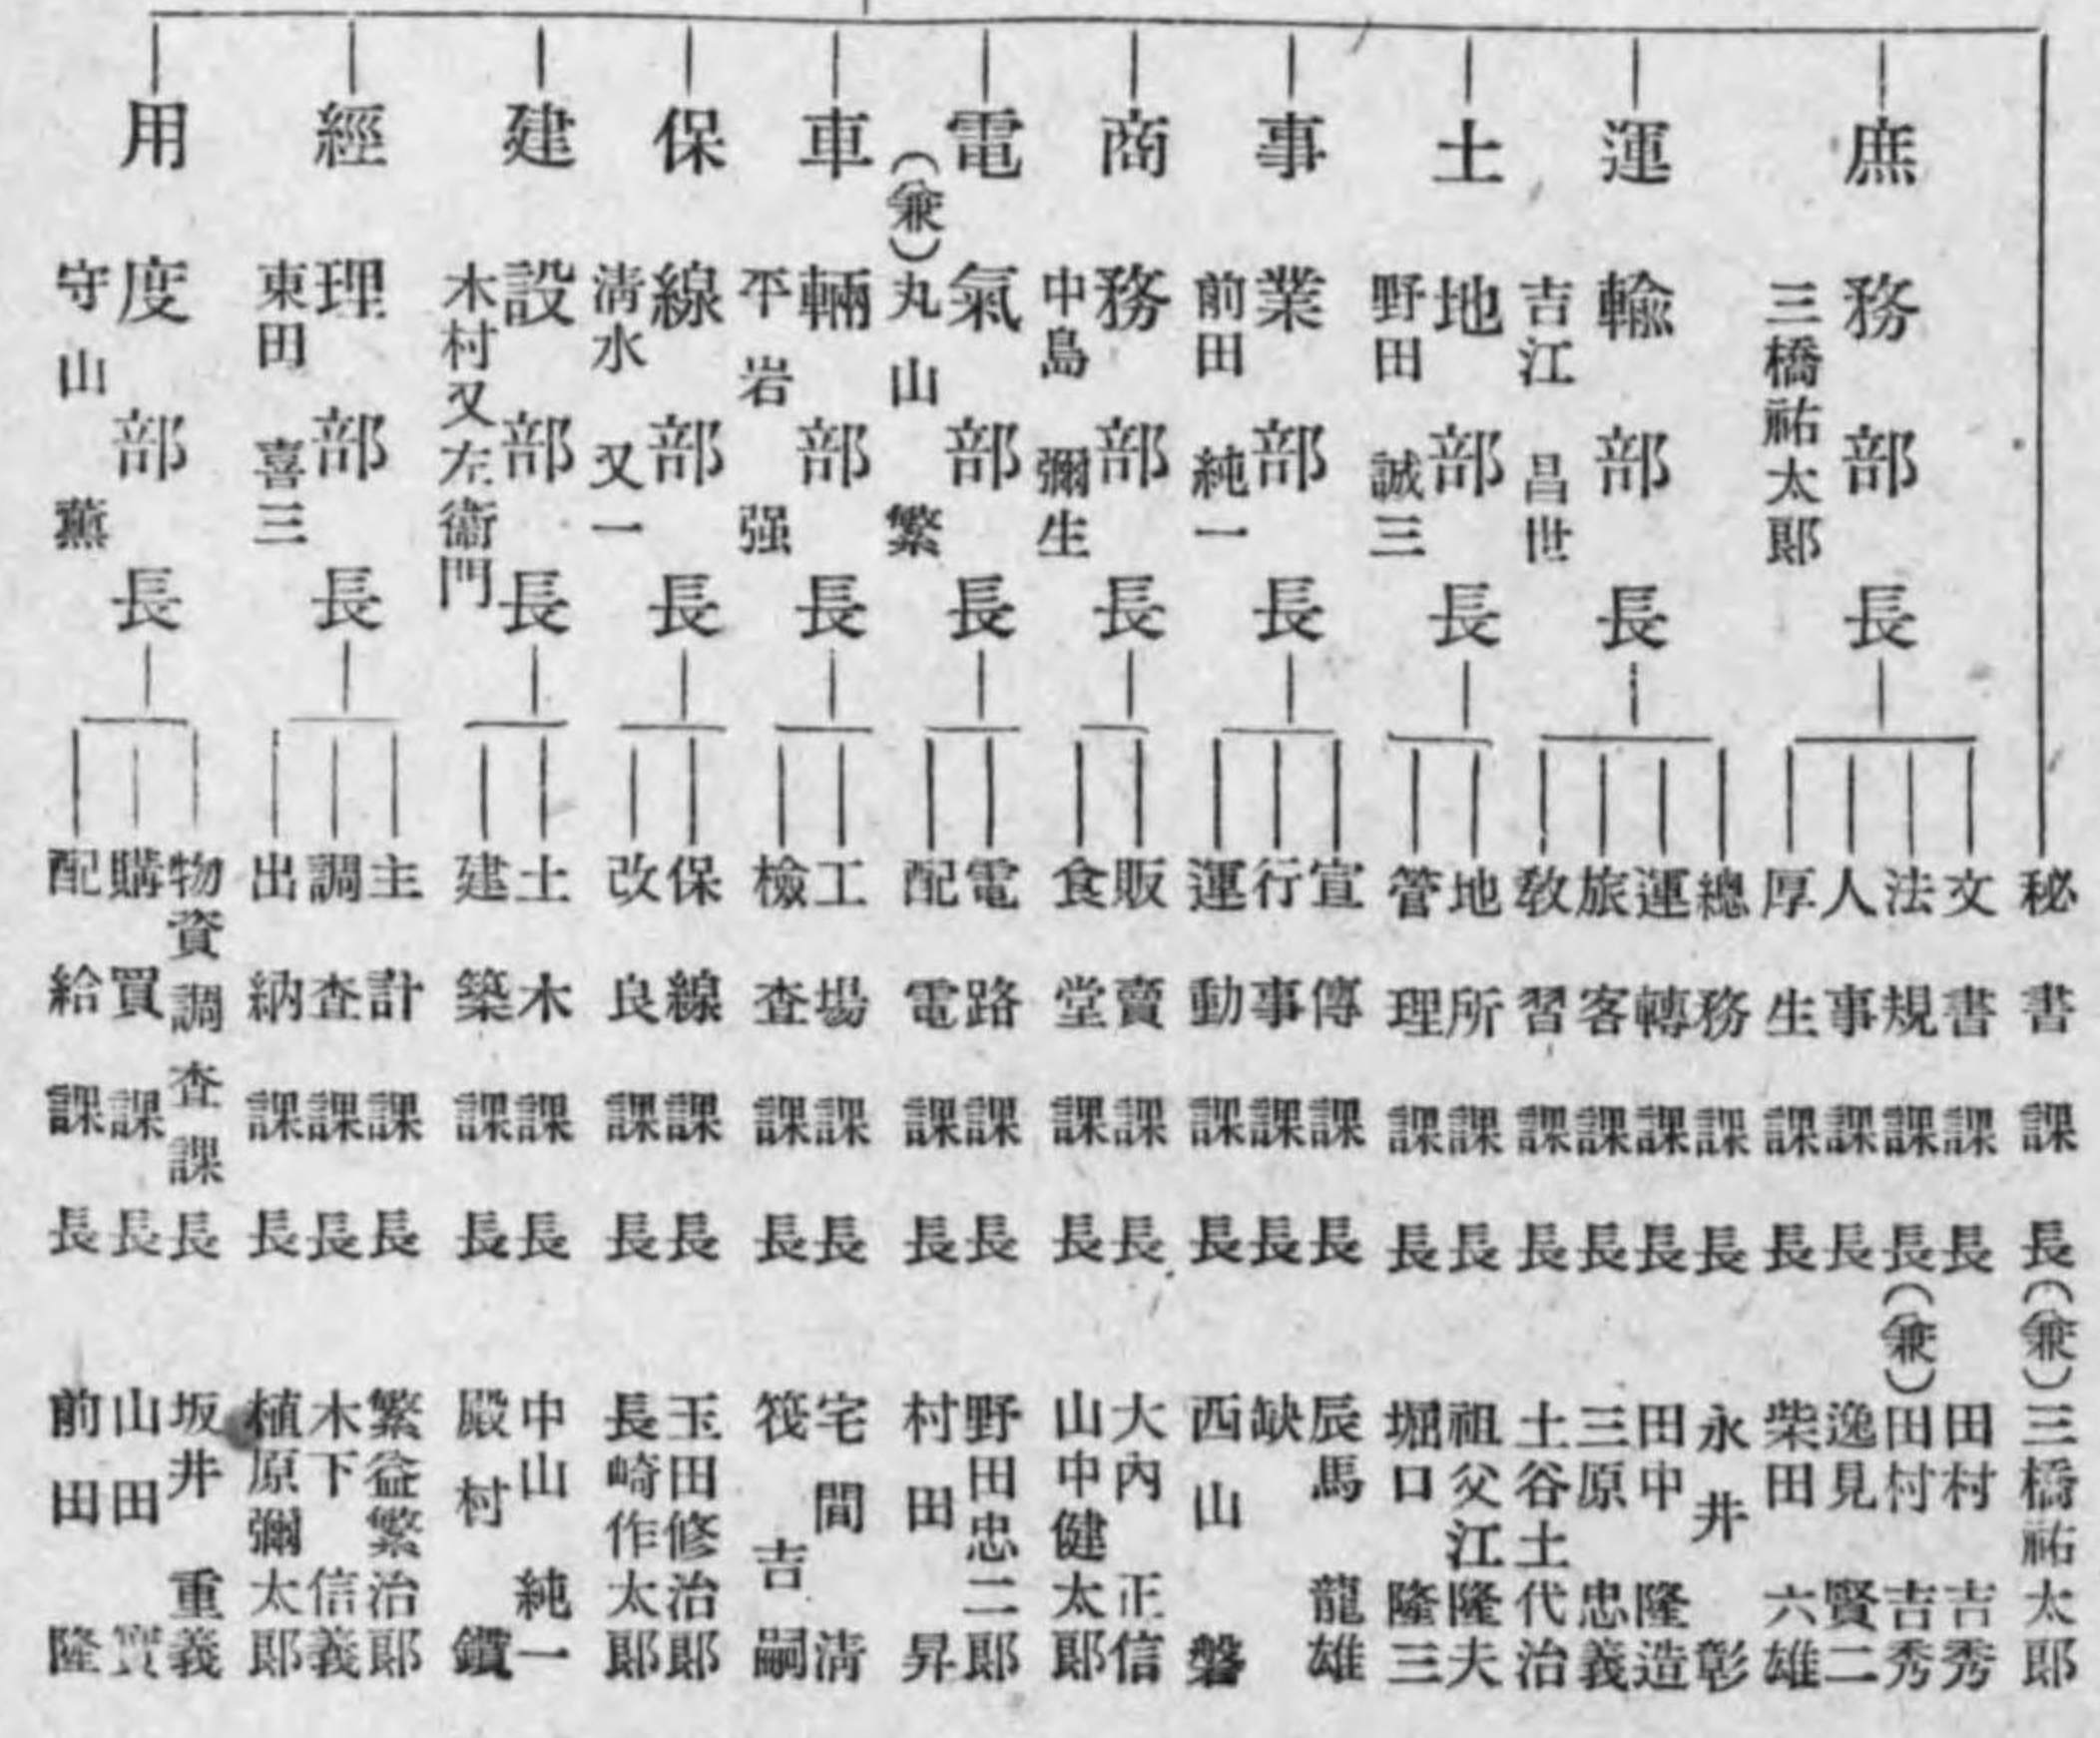 秘書課長(兼)三橋祐太郞
庶務部長
三橋祐太郞
文書課長 田村吉秀
法規課長(兼)田村吉秀
人事課長 逸見賢二
厚生課長 柴田六雄
運輸部長
吉江昌世
總務課長 永井彰
運轉課長 田中隆造
旅客課長 三原忠義
敎習課長 土谷土代治
土地部長
野田誠三
地所課長 祖父江隆夫
管理課長 堀口隆三
事業部長
前田純一
宣傳課長 辰馬龍雄
行事課長 缺
運動課長 西山磐
商務部長
中島彌生
販賣課長 大內正信
食堂課長 山中健太郞
電氣部長
(兼)丸山繁
電路課長 野田忠二郞
配電課長 村田昇
車輛部長
平岩强
工場課長 宅間淸
檢查課長 筏吉嗣
保線部長
淸水又一
保線課長 玉田修治郞
改良課長 長崎作太郞
建設部長
木村又左衞門
土木課長 中山純一
建築課長 殿村鑽
經理部長
東田喜三
主計課長 繁益繁治郞
調查課長 木下信義
出納課長 植原彌太郞
用度部長
守山薰
物資調查課長 坂井重義
購買課長 山田寶
配給課長 前田隆